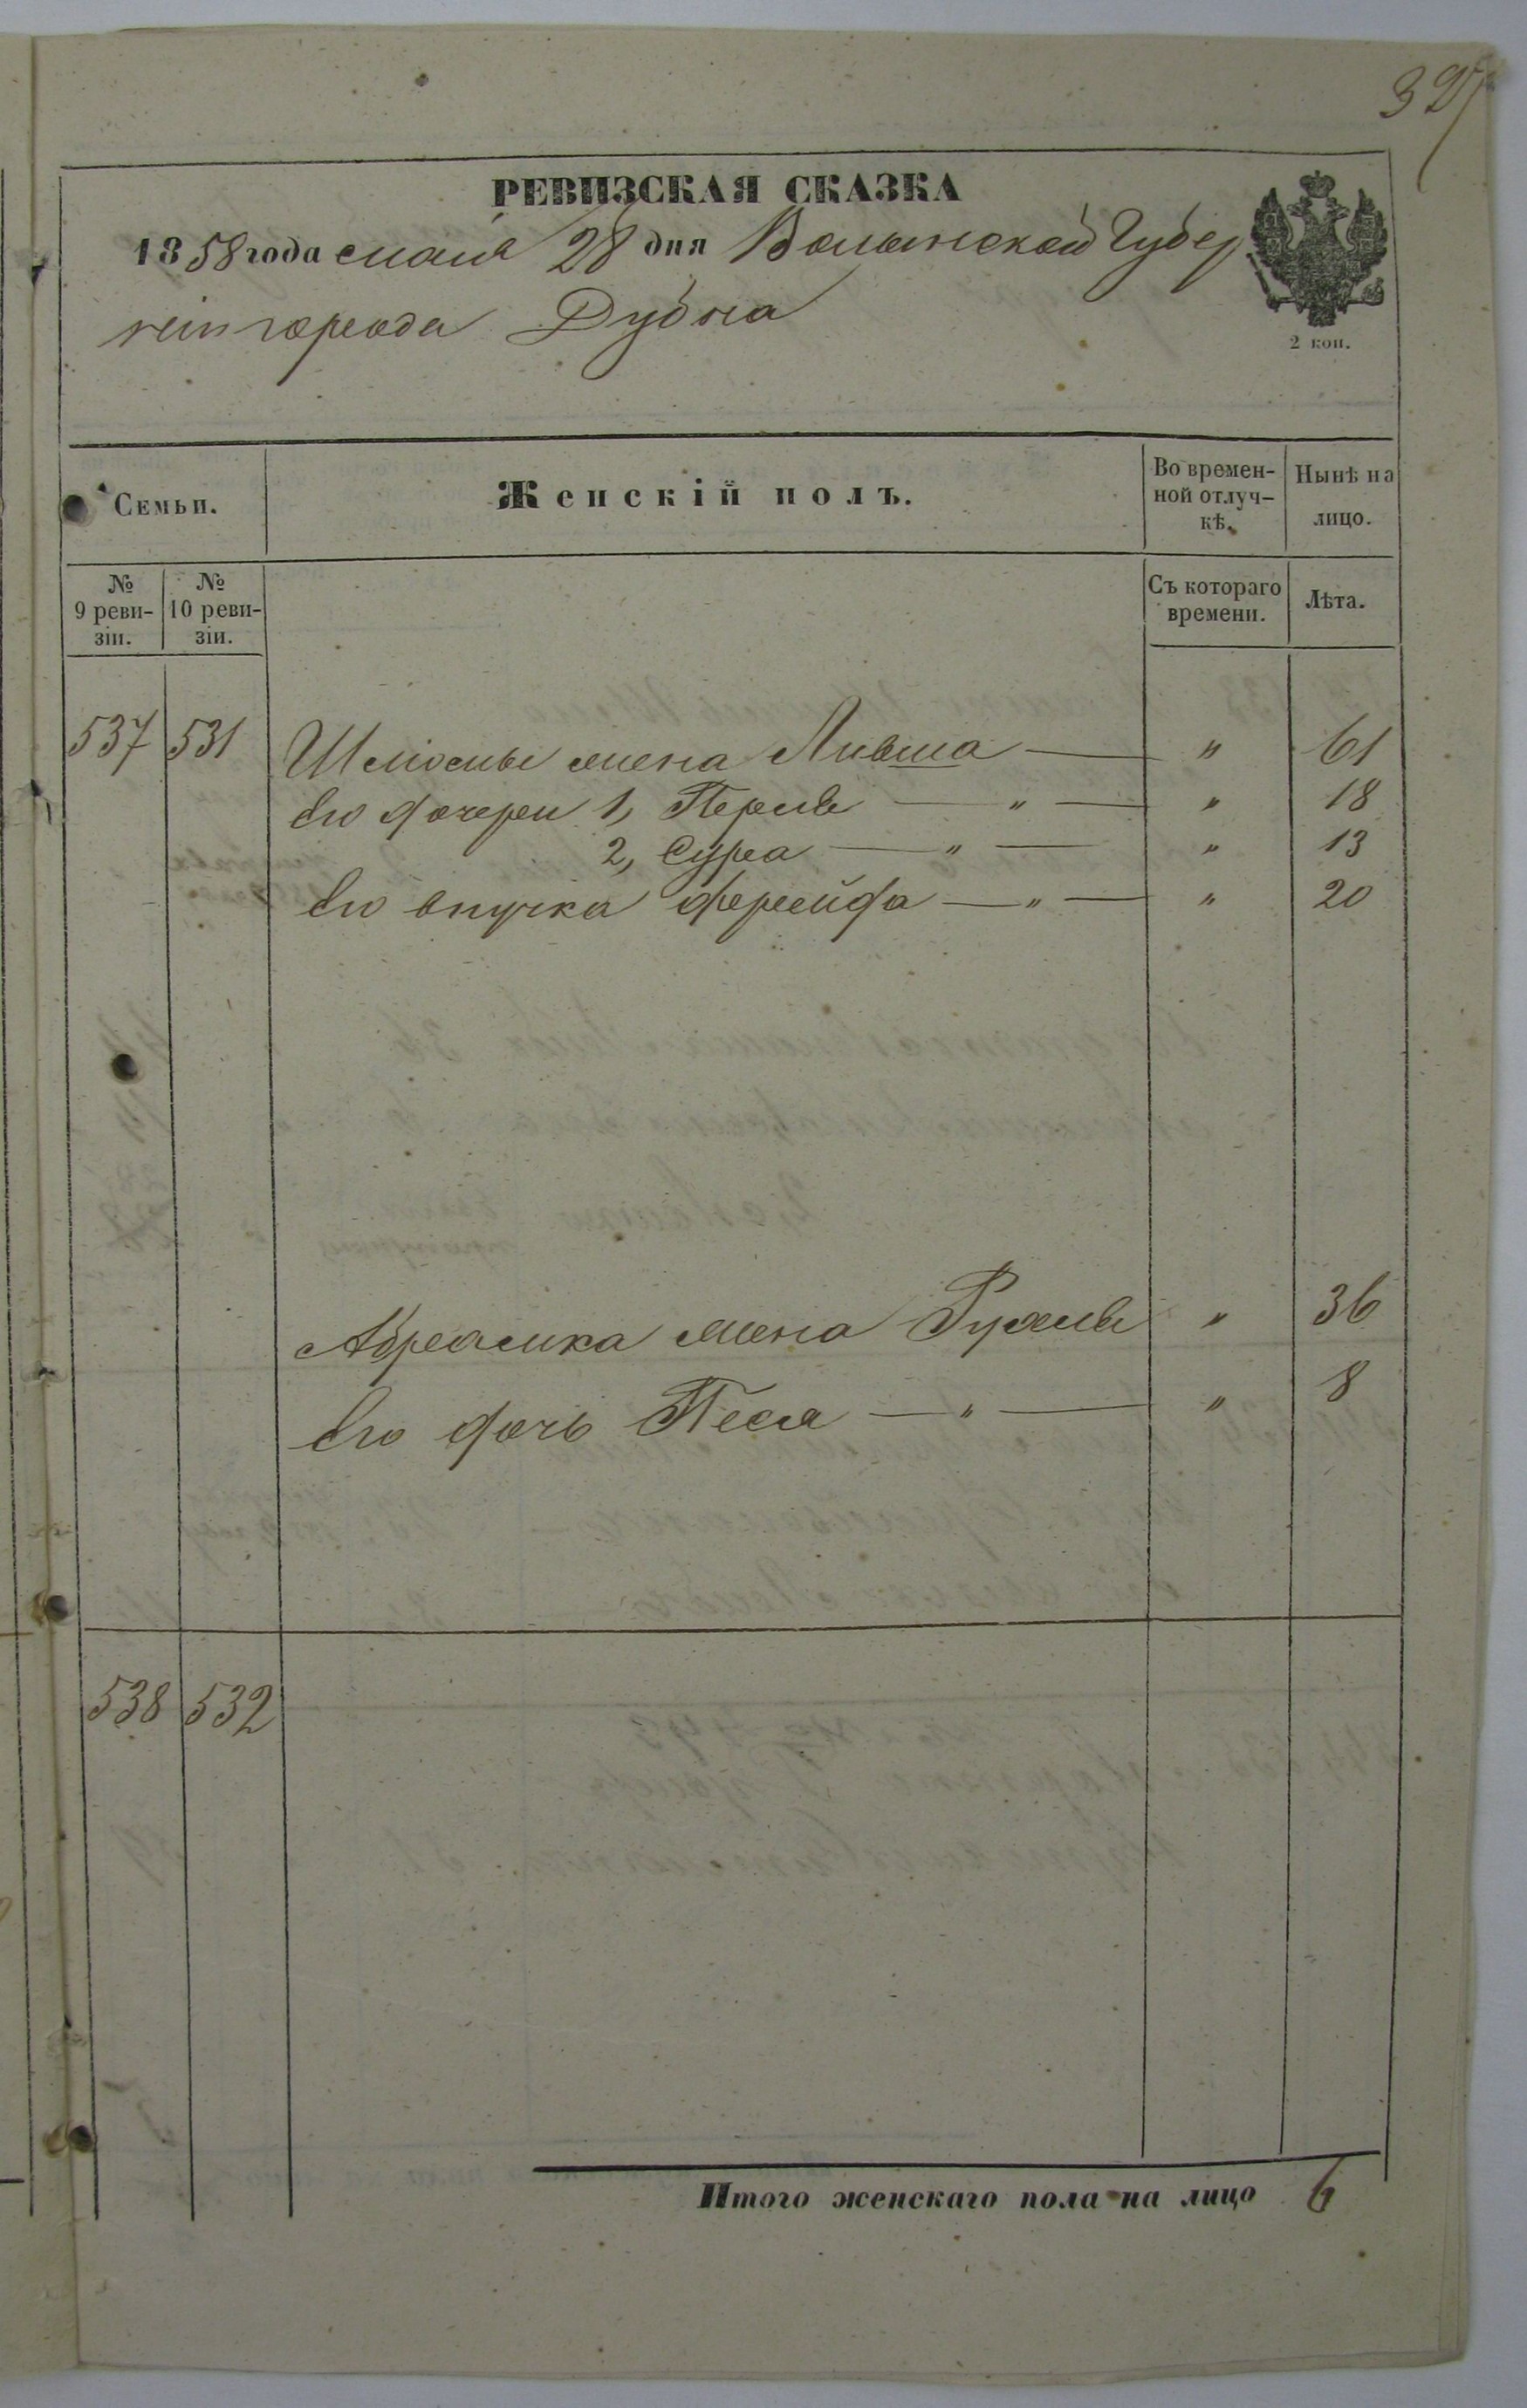 РЕВИЗСКАЯ СКАЗКА
1858 года мая 28 дня Волынской Губер
ніи города Дубна
2 коп.
Семьи.
Женскій полъ.
Во времен-
ной отлуч-
кѣ.
Нынѣ на
лицо.
№
9 реви-
зіи.
№
10 реви-
зіи.
Съ котораго
времени.
Лѣта.
537 531 жена Ливша — " 61
Его дочери 1, Перль — " — " 18
2, Сура — " — " 13
Его внучка Фрейда — " — " 20
Абрамка жена Рухль " 36
Его дочь Песя — " — " 8
538 532
Итого женскаго пола на лицо 6